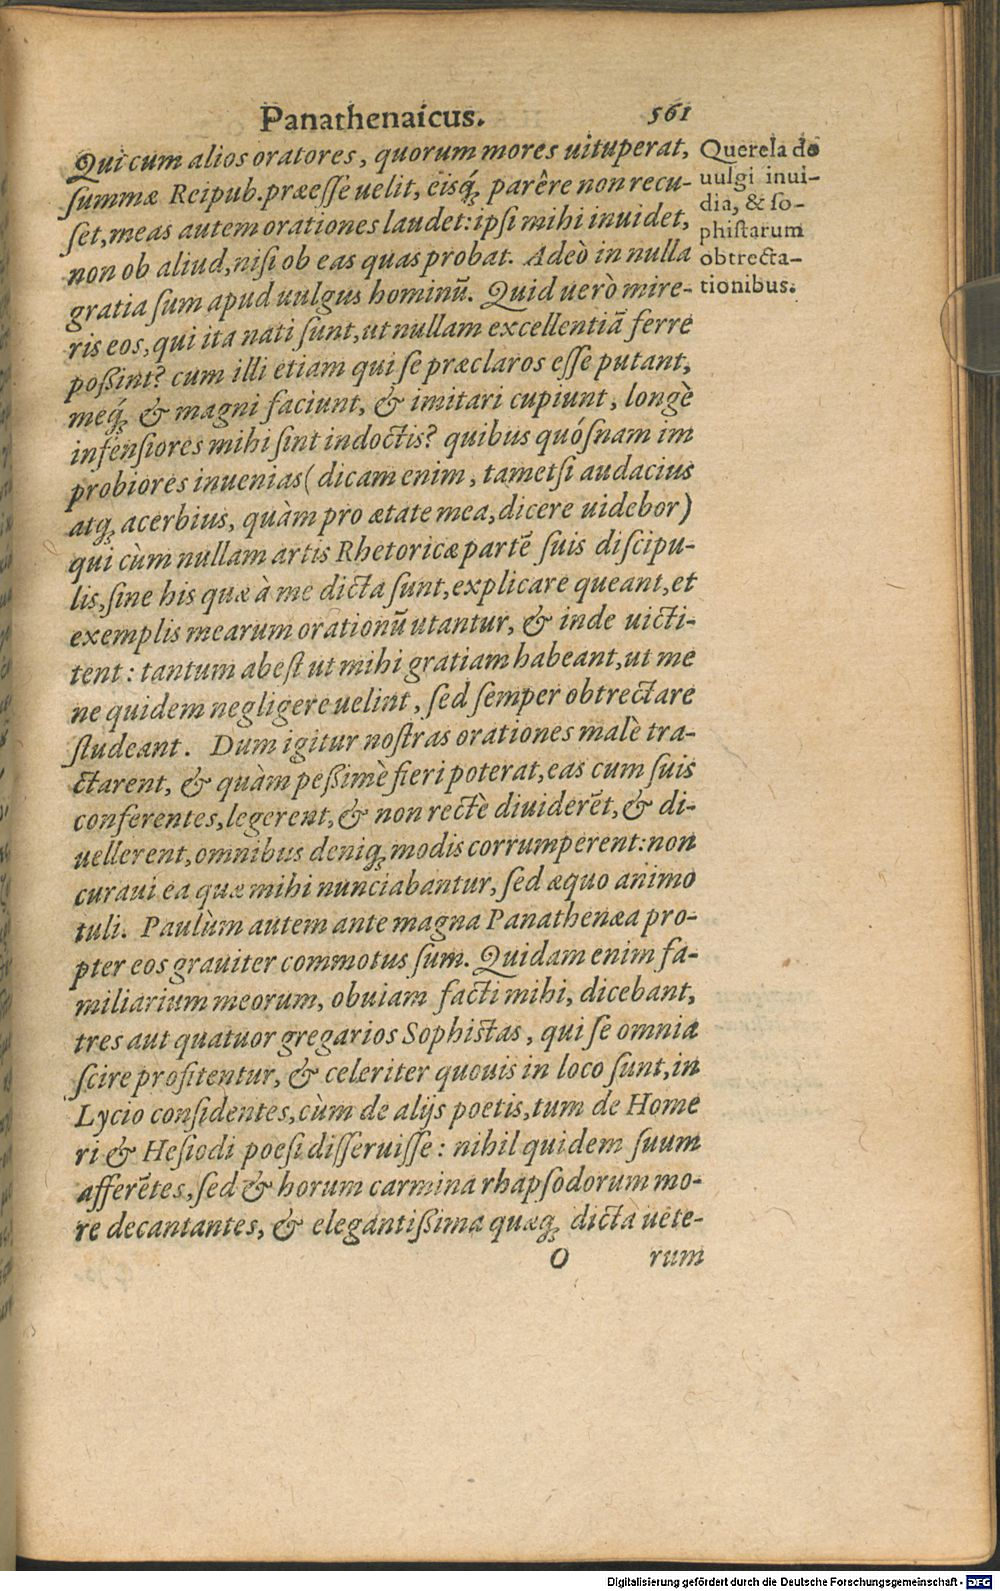 Panathenaicus. 561
Qui cum alios oratores, quorum mores uituperat,
summæ Reipub. præesse uelit, eisq́ꝫ parêre non recu-
set, meas autem orationes laudet: ipsi mihi inuidet,
non ob aliud, nisi ob eas quas probat. Adeò in nulla
gratia sum apud uulgus hominū. Quid uerò mire-
ris eos, qui ita nati sunt, ut nullam excellentiā ferre
poßint? cum illi etiam qui se præclaros esse putant,
meq́ꝫ & magni faciunt, & imitari cupiunt, longè
infensiores mihi sint indoctis? quibus quósnam im
probiores inuenias (dicam enim, tametsi audacius
atqꝫ acerbius, quàm pro ætate mea, dicere uidebor)
qui cùm nullam artis Rhetoricæ partē suis discipu-
lis, sine his quæ à me dicta sunt, explicare queant, et
exemplis mearum orationū utantur, & inde uicti-
tent: tantum abest ut mihi gratiam habeant, ut me
ne quidem negligere uelint, sed semper obtrectare
studeant. Dum igitur nostras orationes malè tra-
ctarent, & quàm peßimè fieri poterat, eas cum suis
conferentes, legerent, & non rectè diuiderēt, & di-
uellerent, omnibus deniqꝫ modis corrumperent: non
curaui ea quæ mihi nunciabantur, sed æquo animo
tuli. Paulùm autem ante magna Panathenæa pro-
pter eos grauiter commotus sum. Quidam enim fa-
miliarium meorum, obuiam facti mihi, dicebant,
tres aut quatuor gregarios Sophistas, qui se omnia
scire profitentur, & celeriter quouis in loco sunt, in
Lycio considentes, cùm de alijs poetis, tum de Home
ri & Hesiodi poesi disseruisse: nihil quidem suum
afferētes, sed & horum carmina rhapsodorum mo-
re decantantes, & elegantißima quæqꝫ dicta uete-
O rum
Querela de
uulgi inui-
dia, & so-
phistarum
obtrecta-
tionibus.
Digitalisierung gefördert durch die Deutsche Forschungsgemeinschaft - DFG